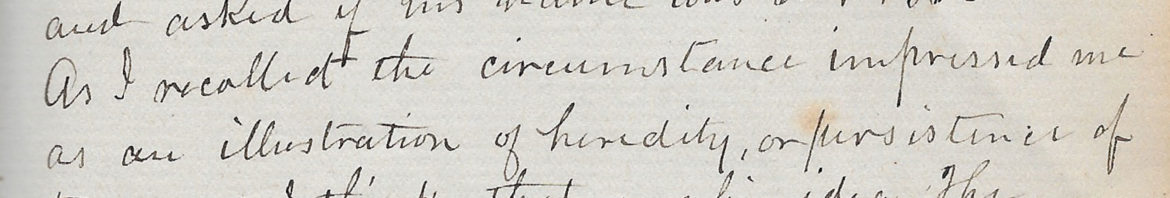 and asked if his name was
As I recalled the circumstance impressed me
as an illustration of heredity, or persistence of